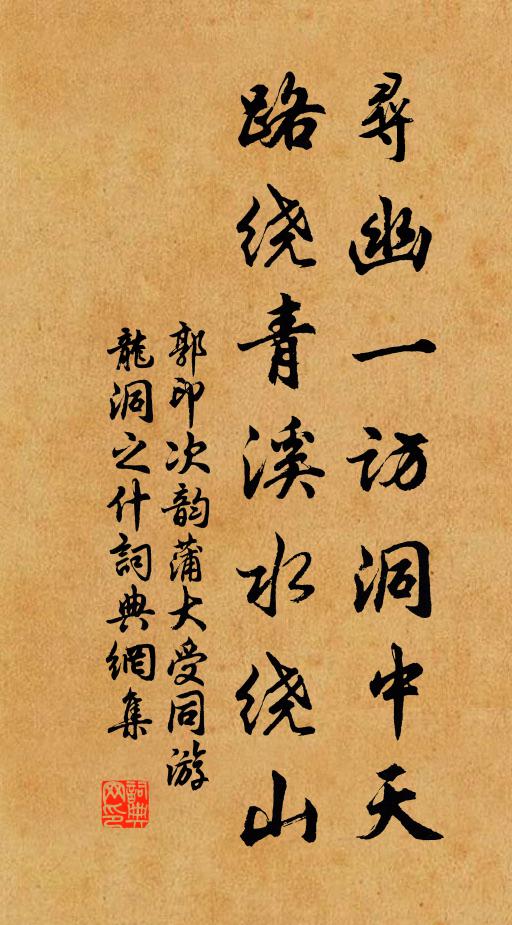 尋幽一访洞中天
路绕青溪水绕山
郭印次韵蒲大受同游
龍洞之什詞典網集
詞典
网印